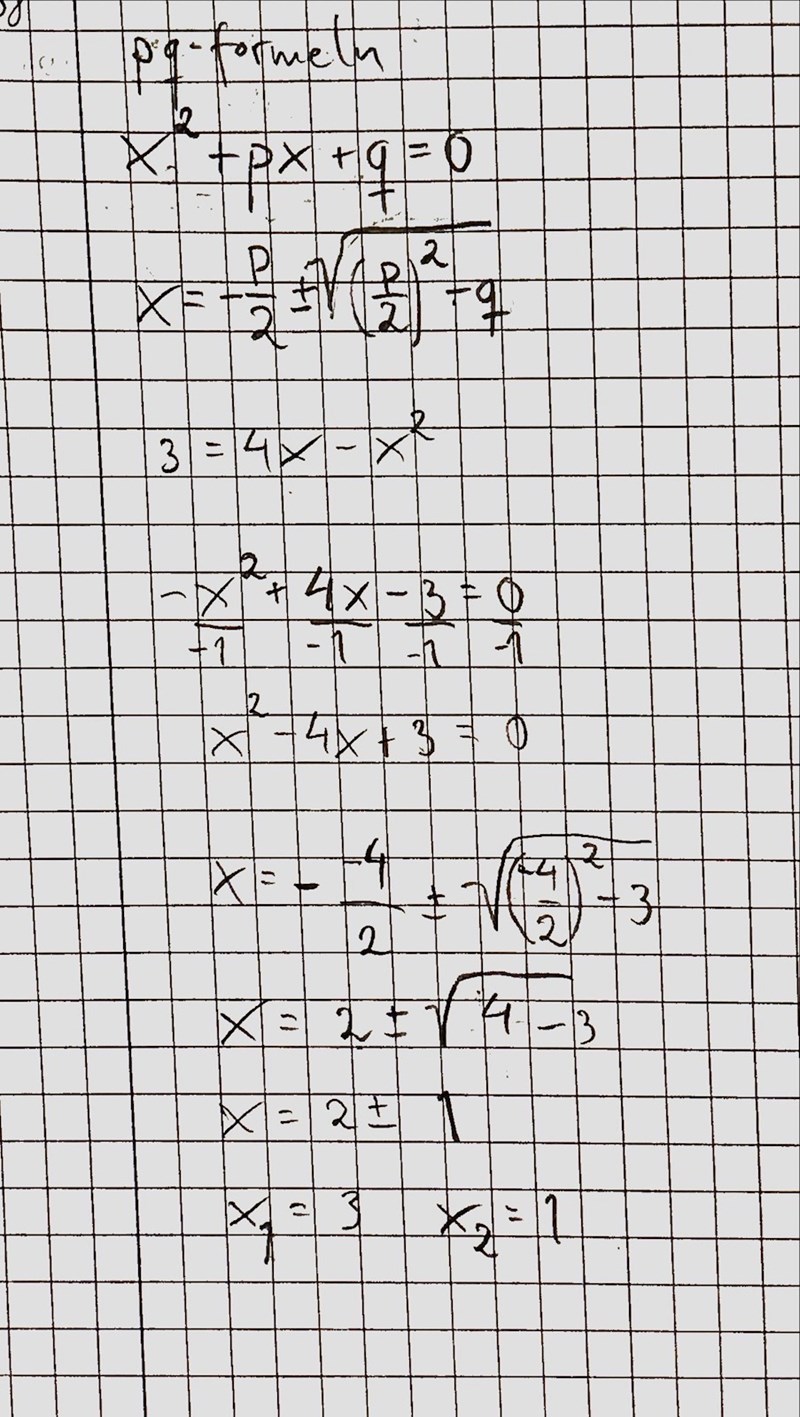 pq-formeln
x² + px + q = 0
x = -p/2 ± √((p/2)² - q)
3 = 4x - x²
-x²/-1 + 4x/-1 - 3/-1 = 0/-1
x² - 4x + 3 = 0
x = - -4/2 ± √((-4/2)² - 3)
x = 2 ± √(4 - 3)
x = 2 ± 1
x₁ = 3 x₂ = 1